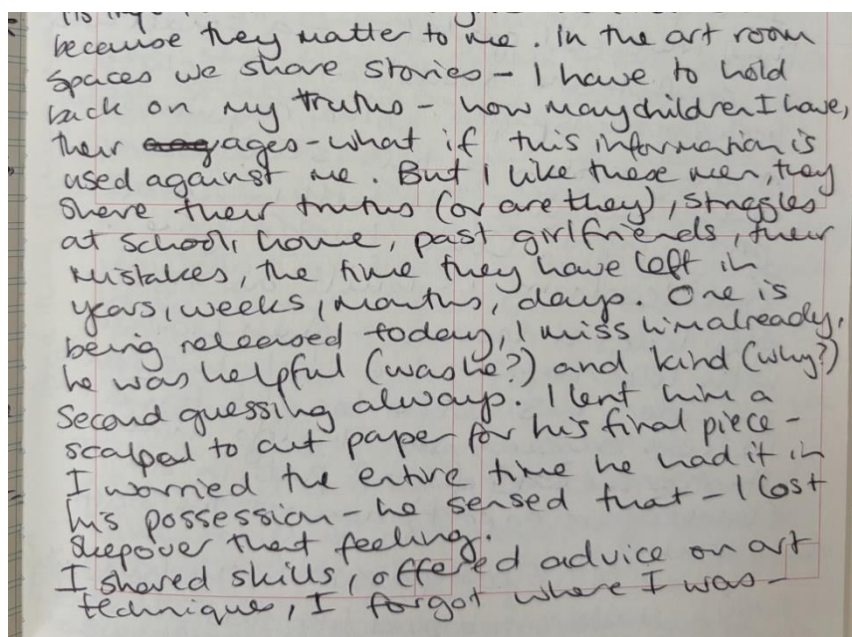 because they matter to me. In the art room
spaces we share stories - I have to hold
back on my truths - how may children I have,
their ages - what if this information is
used against me. But i like these men, they
share their truths (or are they), struggles
at school, home, past girlfriends, their
mistakes, the time they have left in
years, weeks, months, days. One is
being released today, I miss him already,
he was helpful (was he?) and kind (why?)
Second guessing always. I lent him a
scalpel to cut paper for his final piece -
I worried the entire time he had it in
his possession - he sensed that - I lost
sleep over that feeling.
I shared skills, offered advice on art
technique, I forgot where I was -